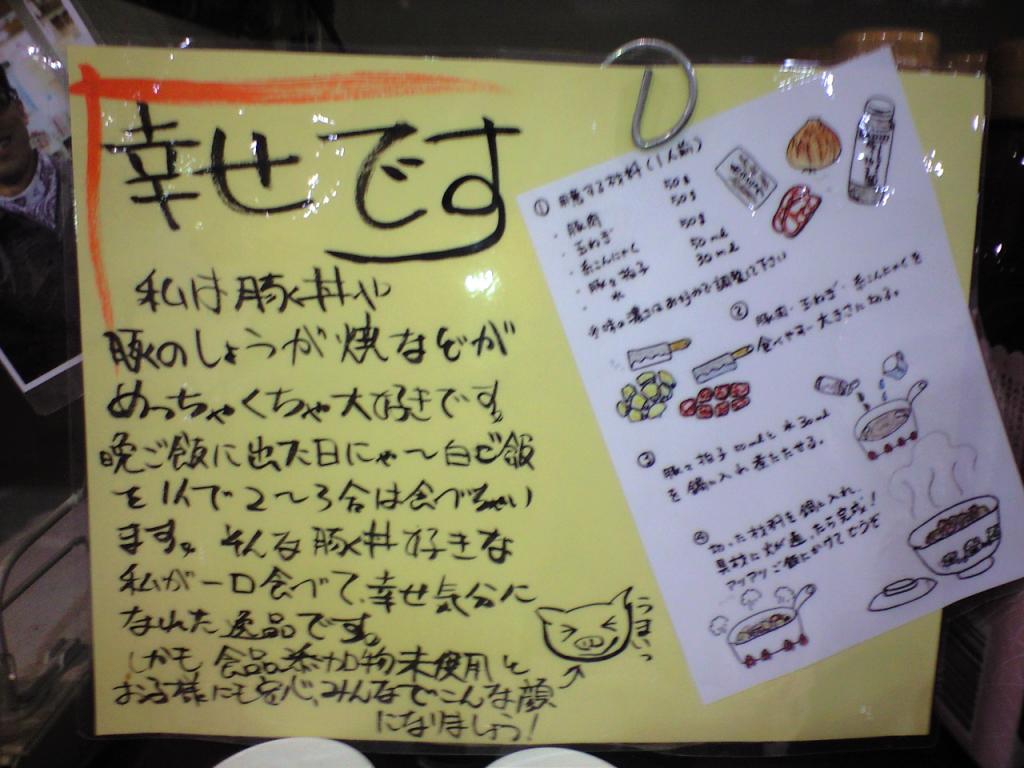 幸せです
私は豚丼や
豚のしょうが焼などが
めっちゃくちゃ大好きです。
晩ご飯に出た日にゃ〜白ご飯
を1人で2〜3合は食べちゃい
ます。そんな豚丼好きな
私が一口食べて、幸せ気分に
なれた逸品です。
しかも食品添加物未使用と
お子様にも安心、みんなでこんな顔
になりましょう!
うまいっ
① 用意する材料(1人前)
・豚肉 50g
・玉ねぎ 50g
・糸こんにゃく 50g
・豚と拍子 50ml
・水 30ml
味の濃さはお好みで調整して下さい
② 豚肉・玉ねぎ・糸こんにゃくを
食べやすい大きさに切る。
③ 豚と拍子50mlと水30ml
を鍋に入れ煮たたせる。
④ 切った材料を鍋に入れ、
具材に火が通ったら完成!
アツアツご飯にかけてどうぞ